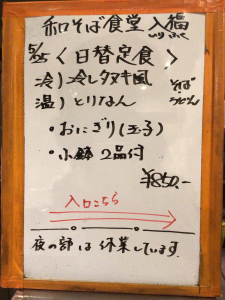 和そば食堂 入福
いりふく
5/25 〈 日替定食 〉
冷）冷しタヌキ風
温）とりなん
そば
うどん
・おにぎり(玉子)
・小鉢 2品付
¥850.-
入口こちら
夜の部は休業しています.